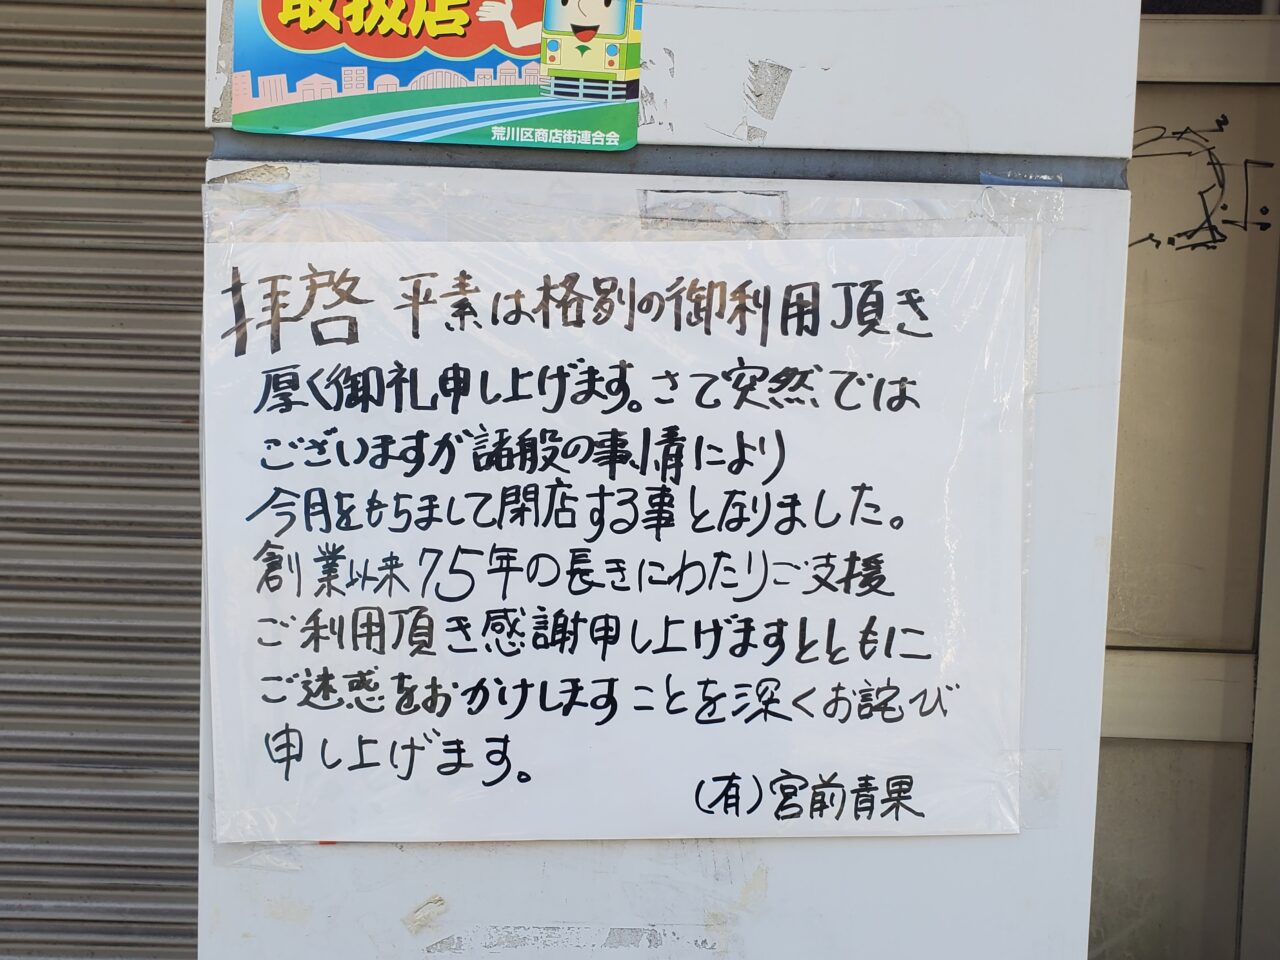 取扱店
荒川区商店街連合会
拝啓 平素は格別の御利用頂き
厚く御礼申し上げます。さて突然では
ございますが諸般の事情により
今月をもちまして閉店する事となりました。
創業以来75年の長きにわたりご支援
ご利用頂き感謝申し上げますとともに
ご迷惑をおかけしますことを深くお詫び
申し上げます。
(有)宮前青果